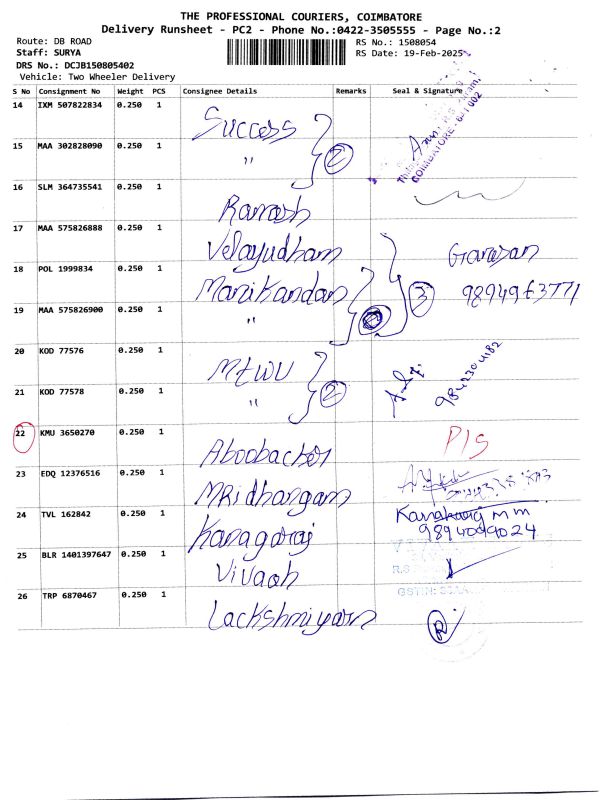 THE PROFESSIONAL COURIERS, COIMBATORE
Delivery Runsheet - PC2 - Phone No.:0422-3505555 - Page No.:2
Route: DB ROAD
RS No.: 1508054
Staff: SURYA
RS Date: 19-Feb-2025
DRS No.: DCJB150805402
Vehicle: Two Wheeler Delivery
S No Consignment No Weight PCS Consignee Details Remarks Seal & Signature
14 IXM 507822834 0.250 1 Success
15 MAA 302828090 0.250 1 " 2
COIMBATORE - 641 002
16 SLM 364735541 0.250 1 Ramesh
17 MAA 575826888 0.250 1 Velayudham Ganesan
18 POL 1999834 0.250 1 Manikandan 3 9894963771
19 MAA 575826900 0.250 1 "
20 KOD 77576 0.250 1 MTWU 9842304182
21 KOD 77578 0.250 1 " 2
22 KMU 3650270 0.250 1 Aboobacker P/S
23 EDQ 12376516 0.250 1 MRidhangam
24 TVL 162842 0.250 1 Kanagaraj Kanakaraj m m
9894099024
25 BLR 1401397647 0.250 1 Vivaah R.S
GSTIN:
26 TRP 6870467 0.250 1 Lackshmiyam